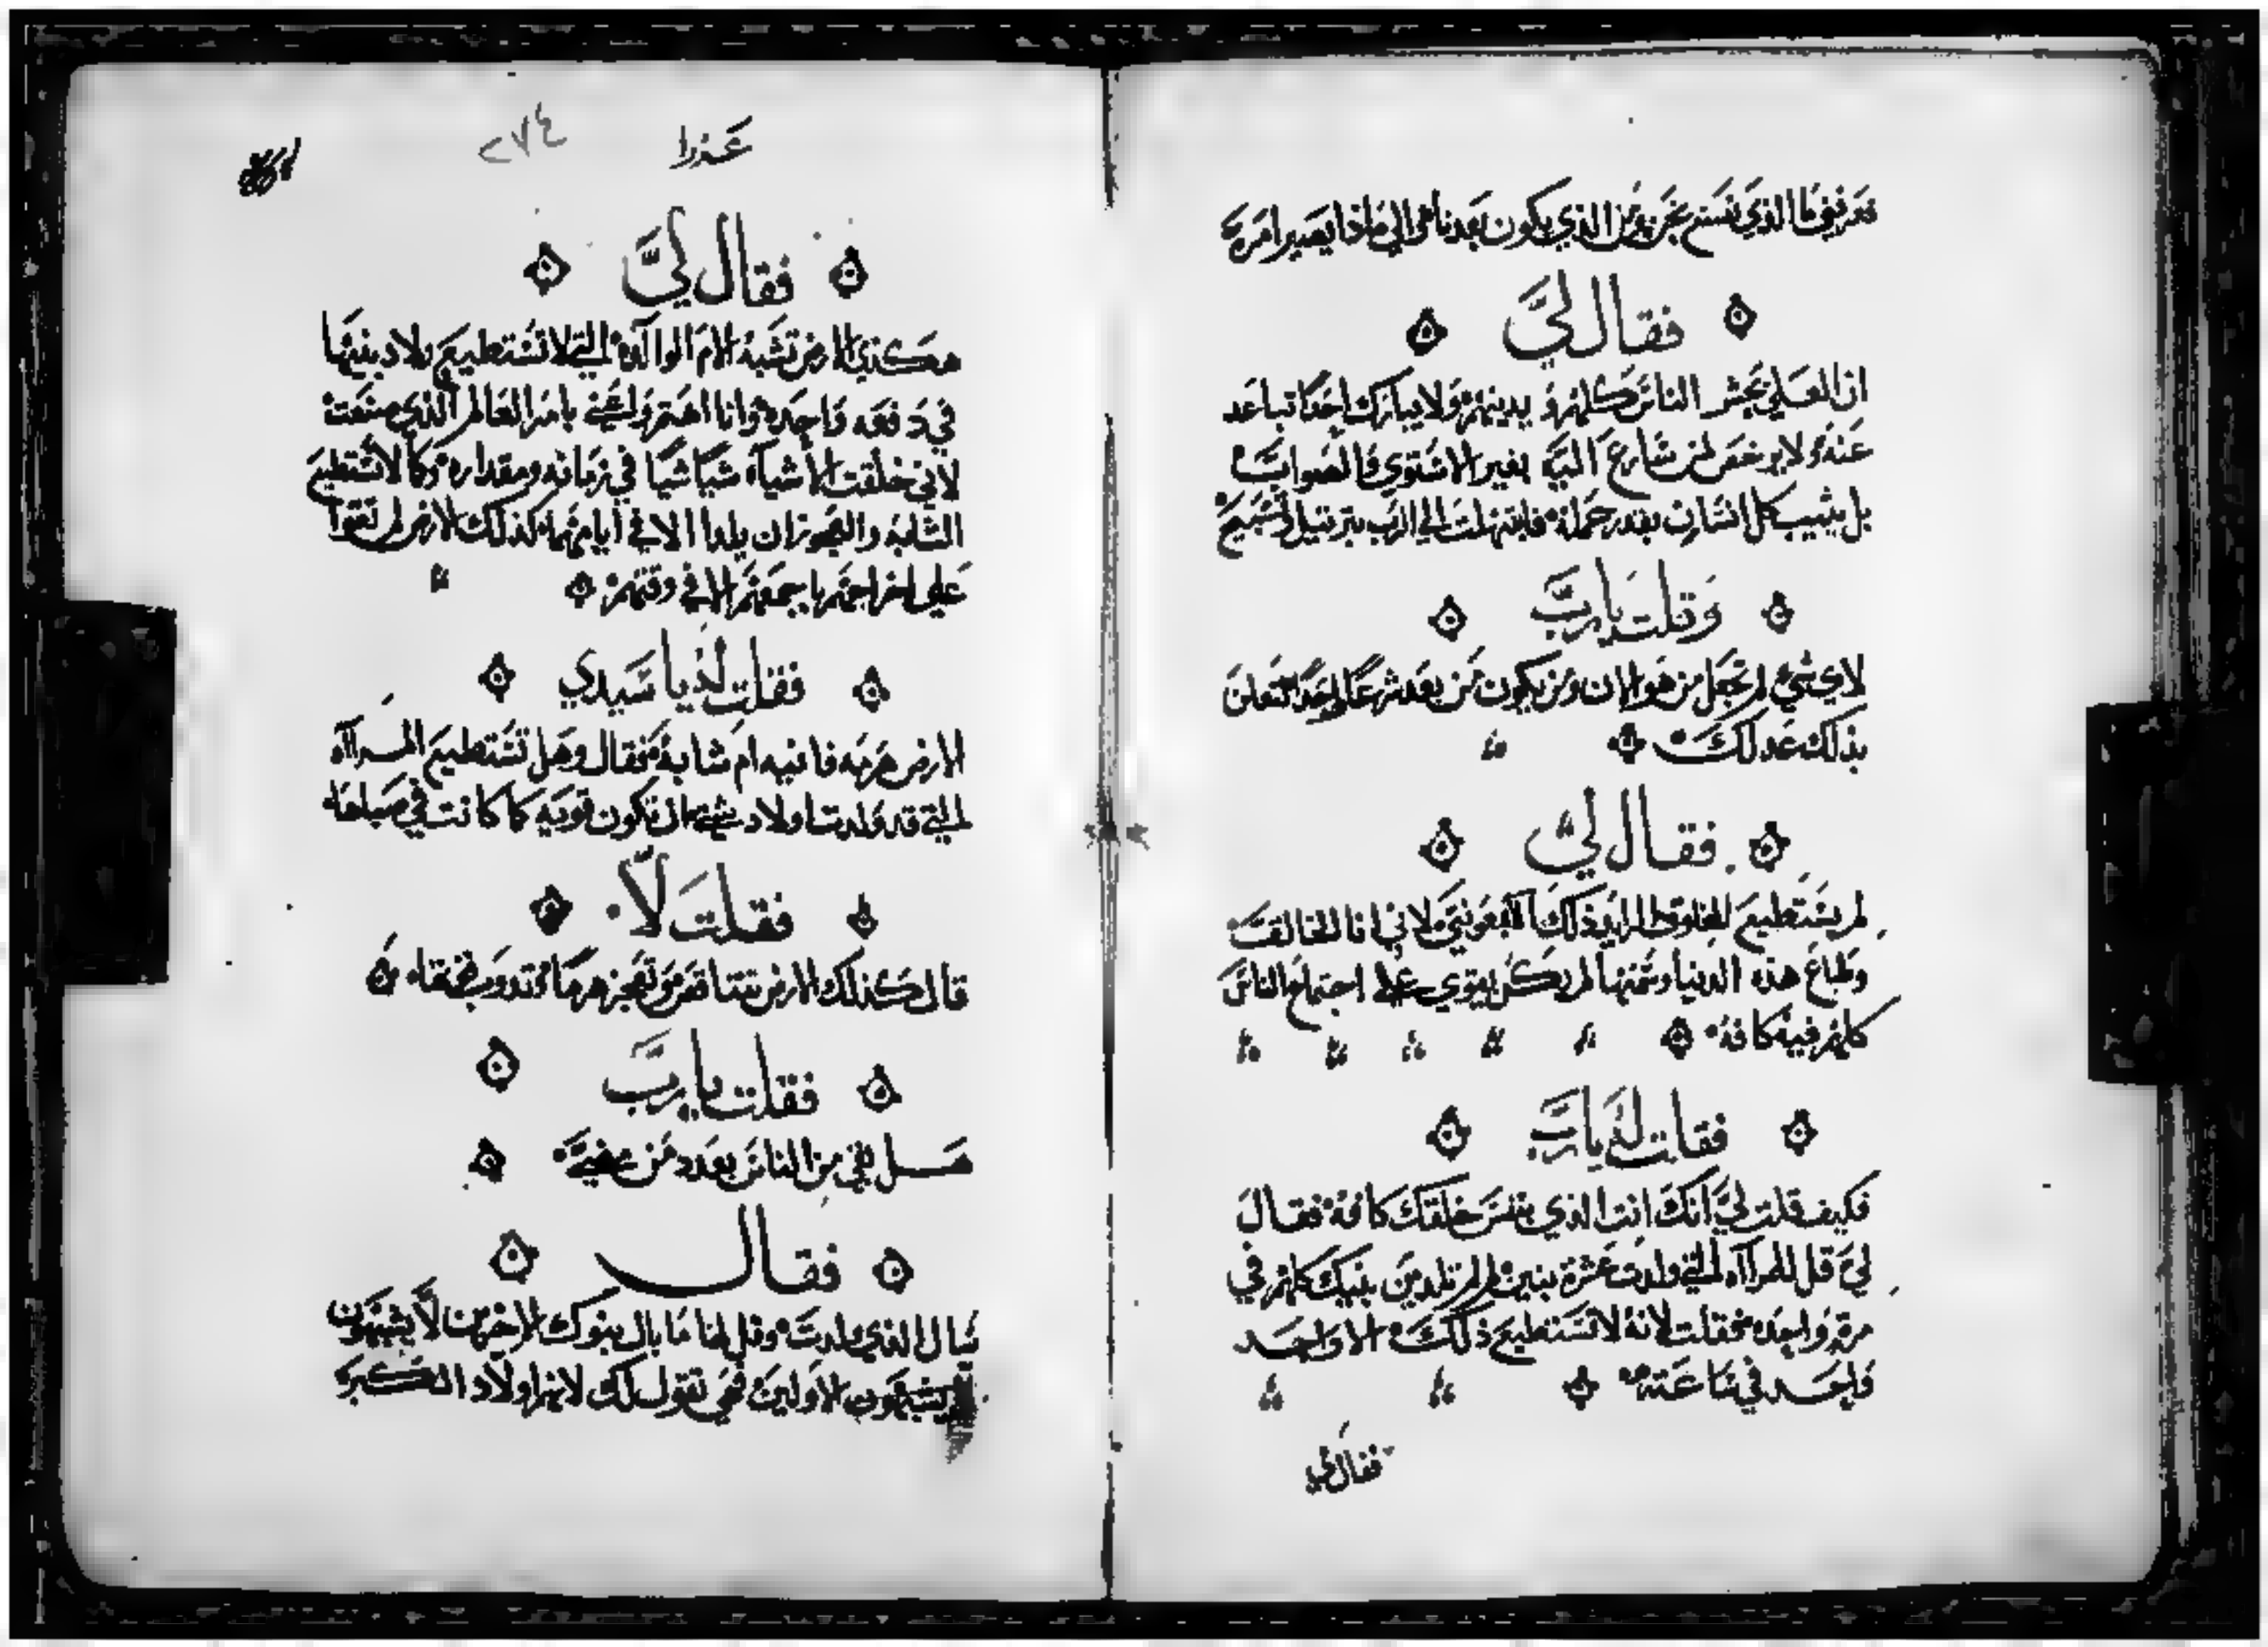 فعرفني ما الذي نصنع نحن ومن الذي يكون بعدنا الى ماذا يصير امره
فقال ليَّ
ان العلي يحشر الناس كلهم ويدينهم ولا يبارك احدًا تباعد
عنه ولا يرخص لمن سارع اليه بغير الاستوى والصواب
بل يثيب كل انسان بقدر حمله فابتهلت الى الرب بترتيل وتسبيح
وقلت يا ربَّ
لاي شي لم تجعل من هو الان ومن يكون من بعد شرعًا واحدًا لتعلن
بذلك عدلك
فقال ليَّ
لم يستطيع المخلوق ذلك لاني انا الخالق
وطباع هذه الدنيا لم يكن يقوي على احتمال الناس
كلهم فيه كافه
فقلت له يا ربَّ
فكيف قلت ليَّ انك انت الذي خلقك كافه فقال
ليَ قل للمرآاه التي ولدت عشرة بنين لم لم تلدين بنيك كلهم في
مرة واحده فقلت لانه لا تستطيع ذلك الا واحد
واحد في ساعته
فقال لي
عزرا
٢٧٤
فقال ليَّ
هكذي الارض تشبه الام الوالده التي لا تستطيع ولاد بنيها
في دفعه واحده وانا اهتم واعني بامر العالم الذي صنعت
لاني خلقت الاشيآء شيًا شيًا في زمانه ومقداره وكما لا تستطيع
الشابه والعجوز ان يلدا الا في ايامهما كذلك الارض لم تقوا
على اخراجهم باجمعهم الا في وقتهم
فقلت له يا سيدي
الارض هرمه فانيه ام شابة فقال وهل تستطيع المرآاه
التي قد ولدت اولاد شتى ان تكون قويه كما كانت في صباها
فقلت لآ
قال كذلك الارض تتناقص وتعجز هرمًا
فقلت يا ربَّ
هل بقي من الناس بعد من
فقال
سال الذي ولدت وقل لها ما بال بنوك الاخرين لا يشبهون
الاولين فهي تقول لك لانهم اولاد الكبر